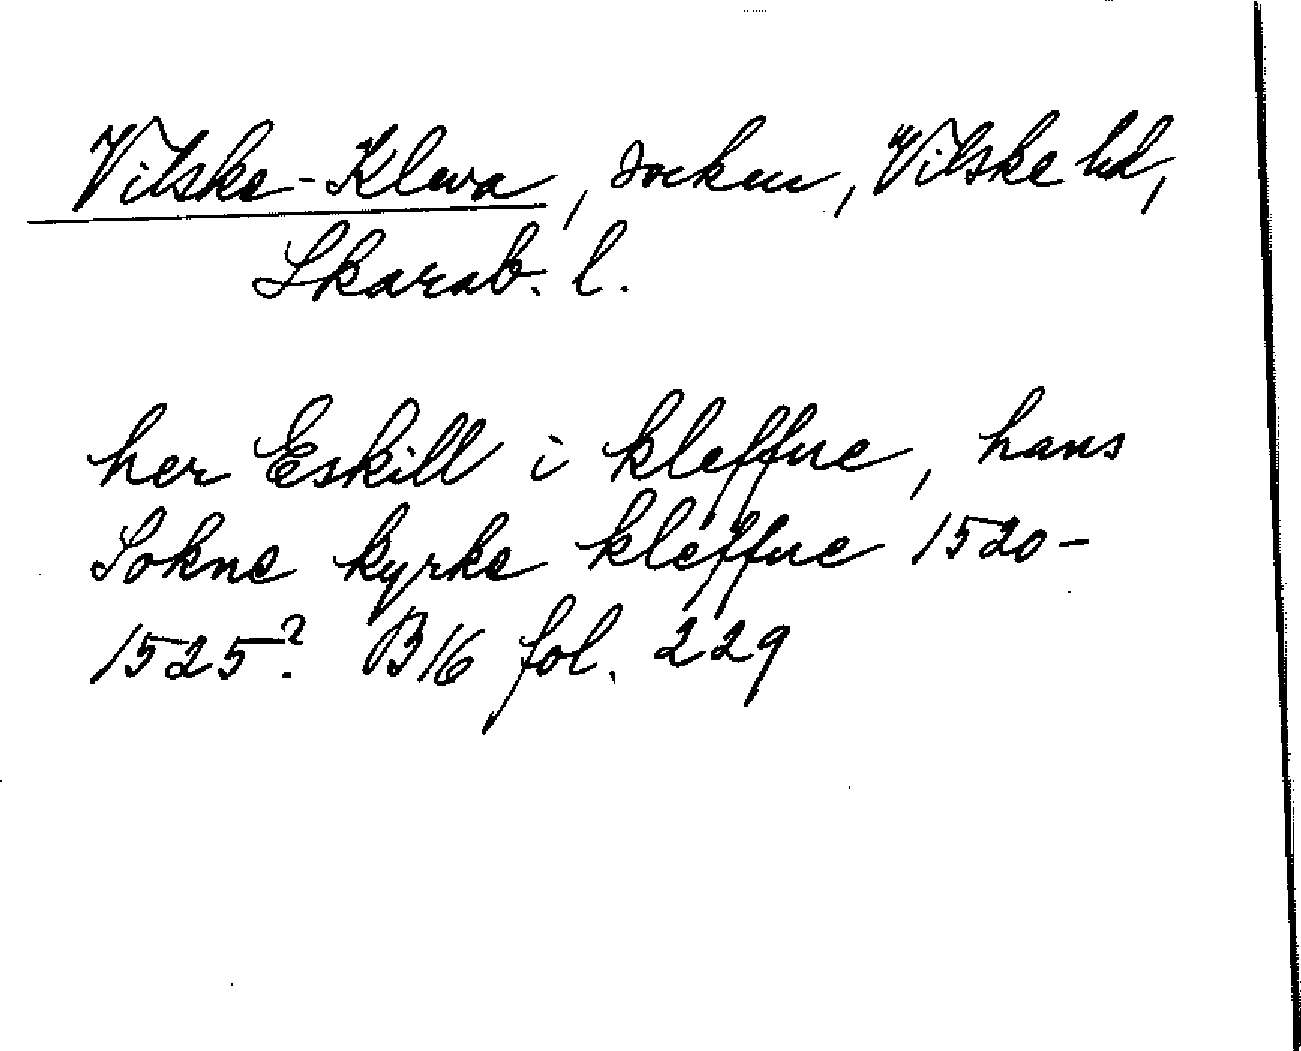 Vilske-Kleva, socken, Vilske hd,
Skarab. l.
her Eskill i kleffue, hans
Sokne kyrke kleffue 1520-
1525? B16 fol. 229